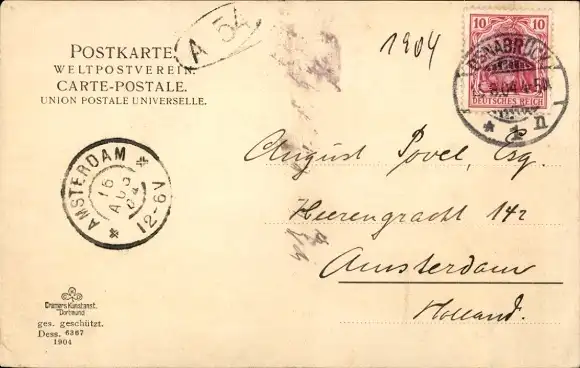 POSTKARTE
WELTPOSTVEREIN.
CARTE-POSTALE.
UNION POSTALE UNIVERSELLE.
A 54
1904
10 10
DEUTSCHES REICH
OSNABRÜCK
8.04.4-5N
* 1 n
AMSTERDAM
16
AUG
04
12-6V
August Povel, Esq.
Heerengracht 142
Amsterdam
Holland.
Cramers Kunstanst.
Dortmund
ges. geschützt.
Dess. 6367
1904